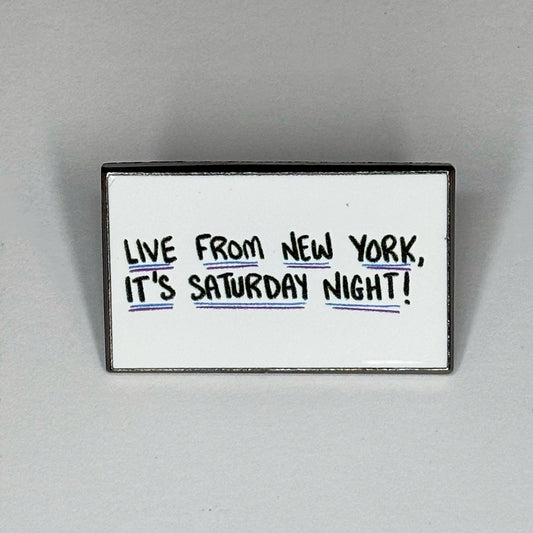 LIVE FROM NEW YORK,
IT'S SATURDAY NIGHT!